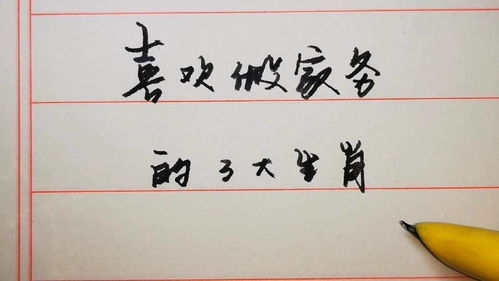 喜欢做家务
的3大生肖